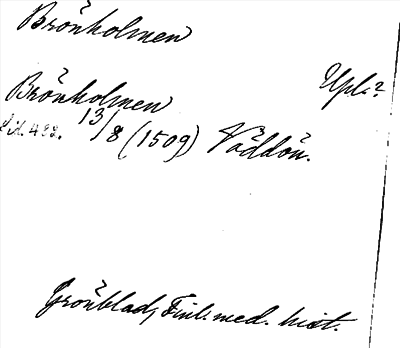 Brönholmen
Upl.?
Brönholmen
sid. 422. 13/8 (1509) Väddön.
Grönblad, Finl. med. hist.